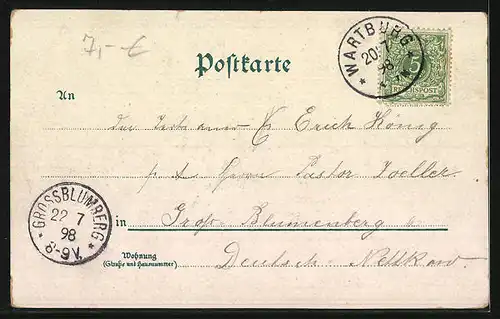 7,- €
WARTBURG
20 7
98
5
REICHSPOST
Postkarte
An
Erich König
p. Adr. Herrn Pastor Zoeller
GROSSBLUMBERG
22 7
98
8-9V.
in Groß Blumenberg b
Wohnung
(Straße und Hausnummer)
Deutsch Nettkow